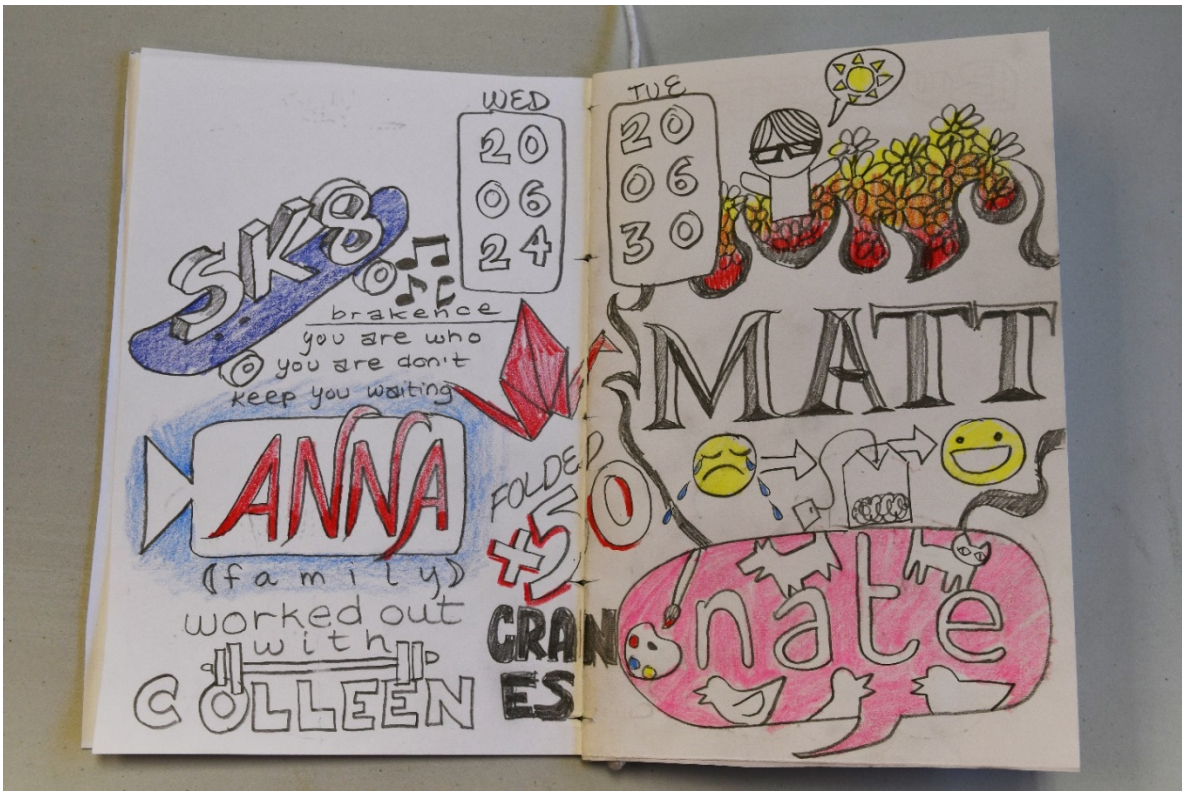 WED
20
06
24
SK8
brakence
you are who
you are don't
keep you waiting
ANNA
(family)
worked out
with
COLLEEN
FOLDED
+50
CRAN
ES
TUE
20
06
30
MATT
nate